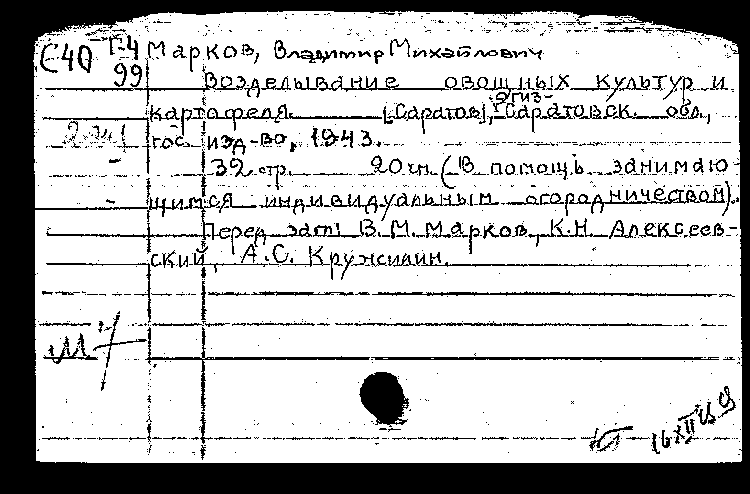 С40 Г-4 Марков, Владимир Михайлович
99 Возделывание овощных культур и
картофеля. [Саратов], Огиз-Саратовск. обл.,
гос. изд-во, 1943.
32 стр. 20 см. (В помощь занимаю
щимся индивидуальным огородничеством).
Перед загл: В.М. Марков, К.Н. Алексеев-
ский, А.С. Кружилин.